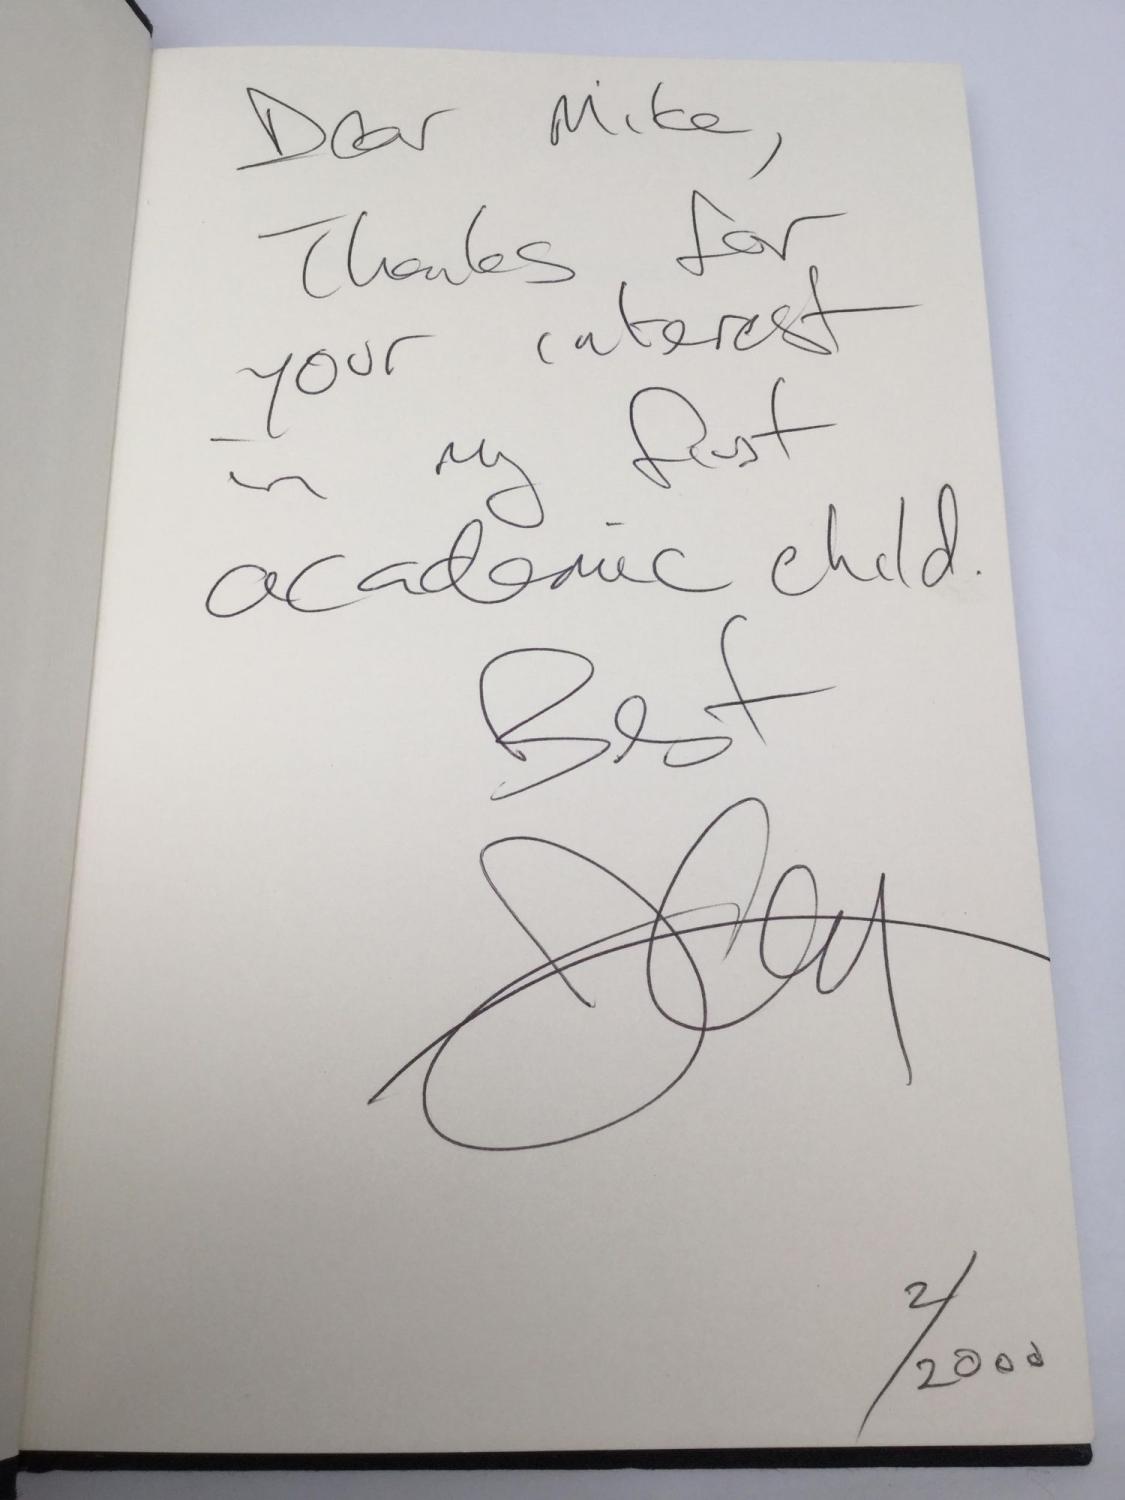 Dear Mike,
Thanks for
your interest
in my first
academic child.
Best
2/2000